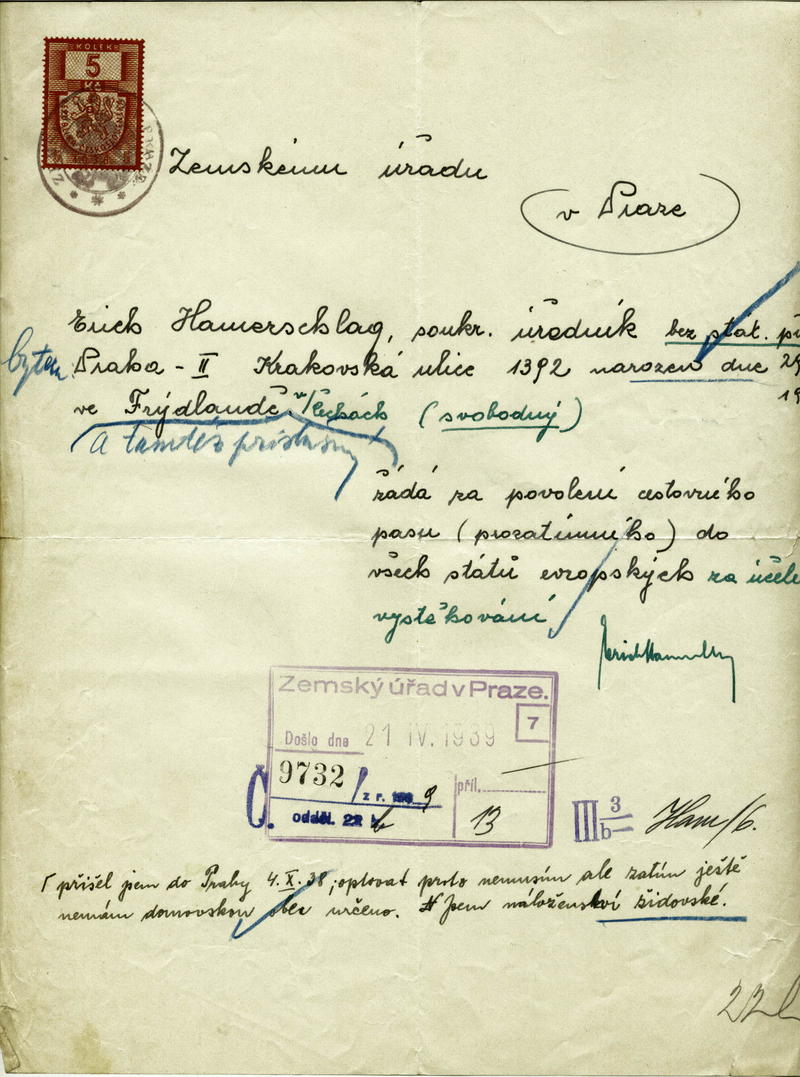 KOLEK
5
Kč
Zemskému úřadu
v Praze
Erich Hamerschlag, soukr. úředník bez stát. př
bytem Praha - II Krakovská ulice 1392 narozen dne 29
19
ve Frýdlandě v/Čechách (svobodný)
a tamtéž příslušný
žádá za povolení cestovného
pasu (prozatímného) do
všech států evropských za účele
vystěhování
Zemský úřad v Praze.
7
Došlo dne 21 IV. 1939
9732/ z r. 9
Č. odděl. 22 b
příl.
13
III 3 b Ham/6.
přišel jem do Prahy 4.X.38; optovat proto nemusím ale zatím ještě
nemám domovskou obec určeno. Jsem náboženství židovské.
22